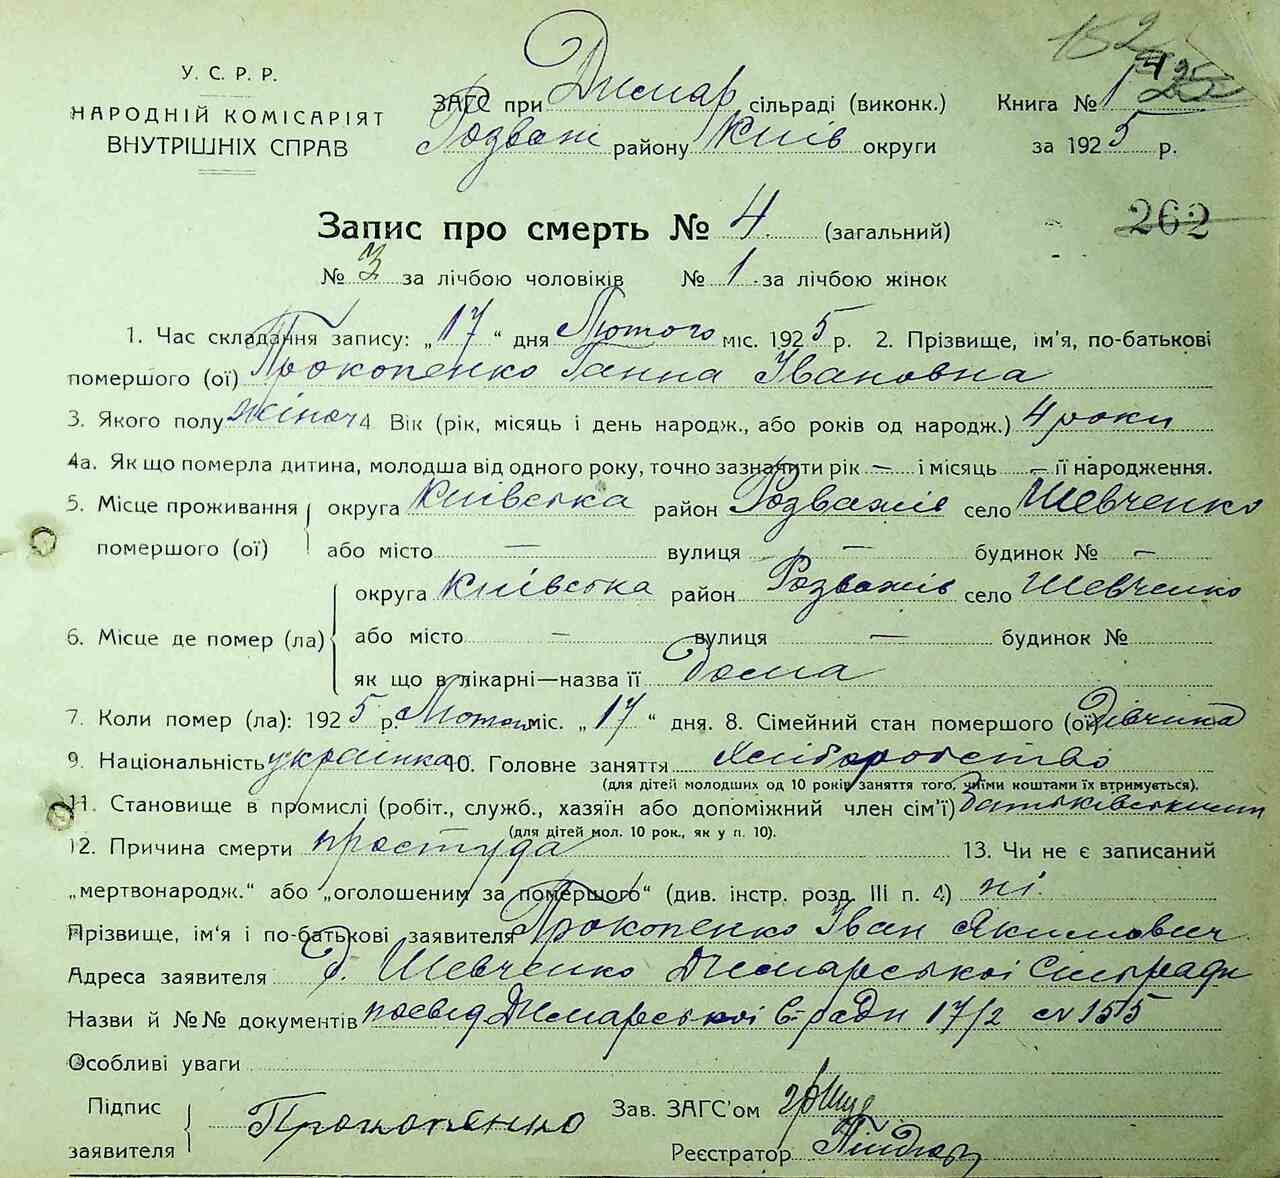 152
У. С. Р. Р.
НАРОДНІЙ КОМІСАРІЯТ
ВНУТРІШНІХ СПРАВ
ЗАГС при Димар сільраді (виконк.) Книга № 1
Розваж району Київ округи за 1925 р.
262
Запис про смерть № 4 (загальний)
№ 3 за лічбою чоловіків № 1 за лічбою жінок
1. Час складання запису: „17“ дня Лютого міс. 1925 р. 2. Прізвище, ім'я, по-батькові
помершого (ої) Прокопенко Ганна Івановна
3. Якого полу жіноч 4. Вік (рік, місяць і день народж., або років од народж.) 4 роки
4а. Як що померла дитина, молодша від одного року, точно зазначити рік — і місяць — її народження.
5. Місце проживання помершого (ої) округа Київська район Розважів село Шевченко
або місто — вулиця — будинок № —
6. Місце де помер (ла) округа Київська район Розважів село Шевченко
або місто — вулиця — будинок №
як що в лікарні—назва її Дома
7. Коли помер (ла): 1925 р. Лютого міс. „17“ дня. 8. Сімейний стан помершого (ої) Дівчина
9. Національність українка 10. Головне заняття Хліборобство
(для дітей молодших од 10 років заняття того, чиїми коштами їх втримується).
11. Становище в промислі (робіт., служб., хазяїн або допоміжний член сім'ї)
(для дітей мол. 10 рок., як у п. 10).
12. Причина смерти простуда 13. Чи не є записаний
„мертвонародж.“ або „оголошеним за помершого“ (див. інстр. розд. III п. 4) ні.
Прізвище, ім'я і по-батькові заявителя Прокопенко Іван Якимович
Адреса заявителя Д. Шевченко Димарської Сільради
Назви й №№ документів посвід Димарської С-ради 17/2 № 155
Особливі уваги
Підпис заявителя Прокопенко Зав. ЗАГС'ом
Реєстратор